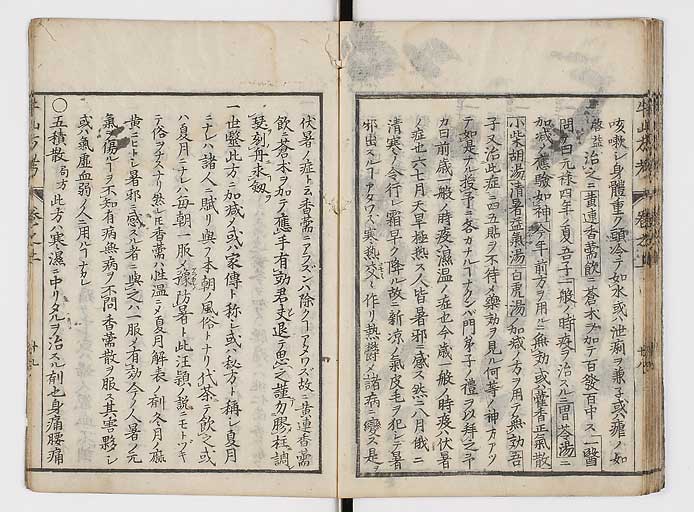 咳嗽シ身體重ク頭冷テ如水或ハ泄痢ヲ兼子或ハ瘧ノ如
啓益治之ニ黄連香薷飲ニ蒼木ヲ加テ百發百中ス一醫
問曰元禄四年ノ夏吾子一般ノ時疫ヲ治スルニ胃苓湯ニ
加减ノ應驗如神今年前方ヲ用ルニ無効或ハ藿香正氣散
小柴胡湯清暑益氣湯白虎湯加减ノ方ヲ用テ無効吾
子又治此症ニ四五貼ヲ不待メ藥効ヲ見ル何等ノ神方アツ
テ如是ナル授予ニ否カナルーナクンバ門弟子ノ禮ヲ以拜之予
カ曰前歳一般ノ時疫ハ濕温ノ症也今歳一般ノ時疫ハ伏暑
ノ症也六七月天旱極熱ス人皆暑邪ニ感ス然ニ八月俄ニ
清寒ノ令行レ霜早ク降ル故ニ新凉ノ氣皮毛ヲ犯レテ暑
邪出スルーアタワズ寒熱交〻作リ熱欝メ諸病ニ變ス是
伏暑ノ症ナル香薷ニアラズンバ除クーアタワズ故ニ黄連香薷
飲ニ蒼木ヲ加テ應手有効君丈退テ思之謹勿膠柱調
瑟刻舟求劔
一世醫此方ニ加减ノ或ハ家傳ト称シ或ハ秘方ト稱レ夏月
ニナレハ諸人ニ賦リ與ヲ本朝ノ風俗トナリ代茶テ飲之或
ハ夏月ニナレハ毎朝一服メ豫防暑ト此汪頴ノ説ニモトヅキ
テ俗ヲナスナリ然レ𪜈香薷ハ性温ニメ夏月解表ノ剤冬月ノ麻
黄ニヒトレ暑邪ニ感スル者ニ與之ハ一服メ有効今ノ人暑ノ元
氣ヲ傷ルーヲ不知有病無病ヲ不問香薷散ヲ服ス其害夥シ
或ハ氣虚血弱ノ人ニ用ルーナカレ
○五積散 局方 此方ハ寒濕ニ中リタルヲ治スル剤也身痛腰痛